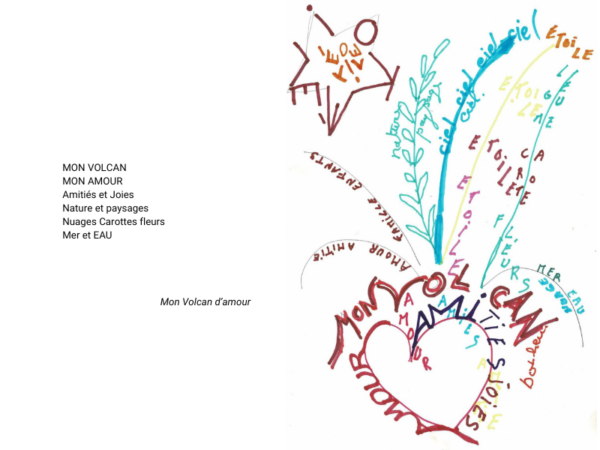 MON VOLCAN
MON AMOUR
Amitiés et Joies
Nature et paysages
Nuages Carottes fleurs
Mer et EAU
Mon Volcan d'amour
ETOILE
ETOILE
nature
paysage
ciel ciel ciel ciel
ciel
ETOILE
ETOILE
LEGUME
ETOILE
CAROTTE
ETOILE
FLEURS
FAMILLE ENFANTS
AMOUR AMITIE
MER EAU
NUAGE
MON VOLCAN
AMOUR
AMITIES JOIES
AMOUR
bonheur